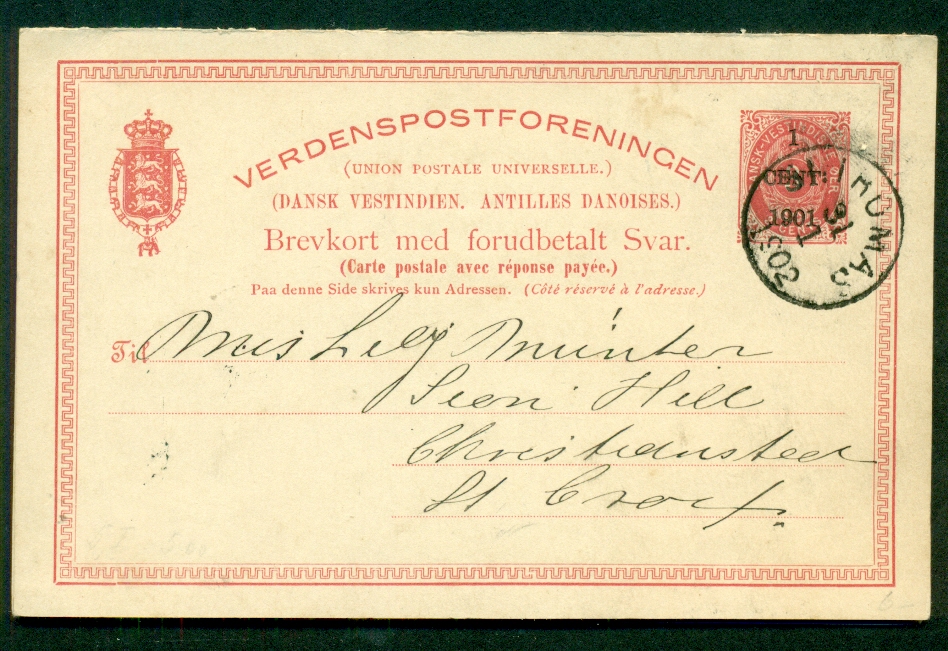 VERDENSPOSTFORENINGEN
(UNION POSTALE UNIVERSELLE.)
(DANSK VESTINDIEN. ANTILLES DANOISES.)
Brevkort med forudbetalt Svar.
(Carte postale avec réponse payée.)
Paa denne Side skrives kun Adressen. (Côté réservé à l'adresse.)
DANSK-VESTINDISKE
CENT
1
CENT
1901
THOMAS
Til Miss Lily Münter
Sion Hill
Christiansted
St Croix